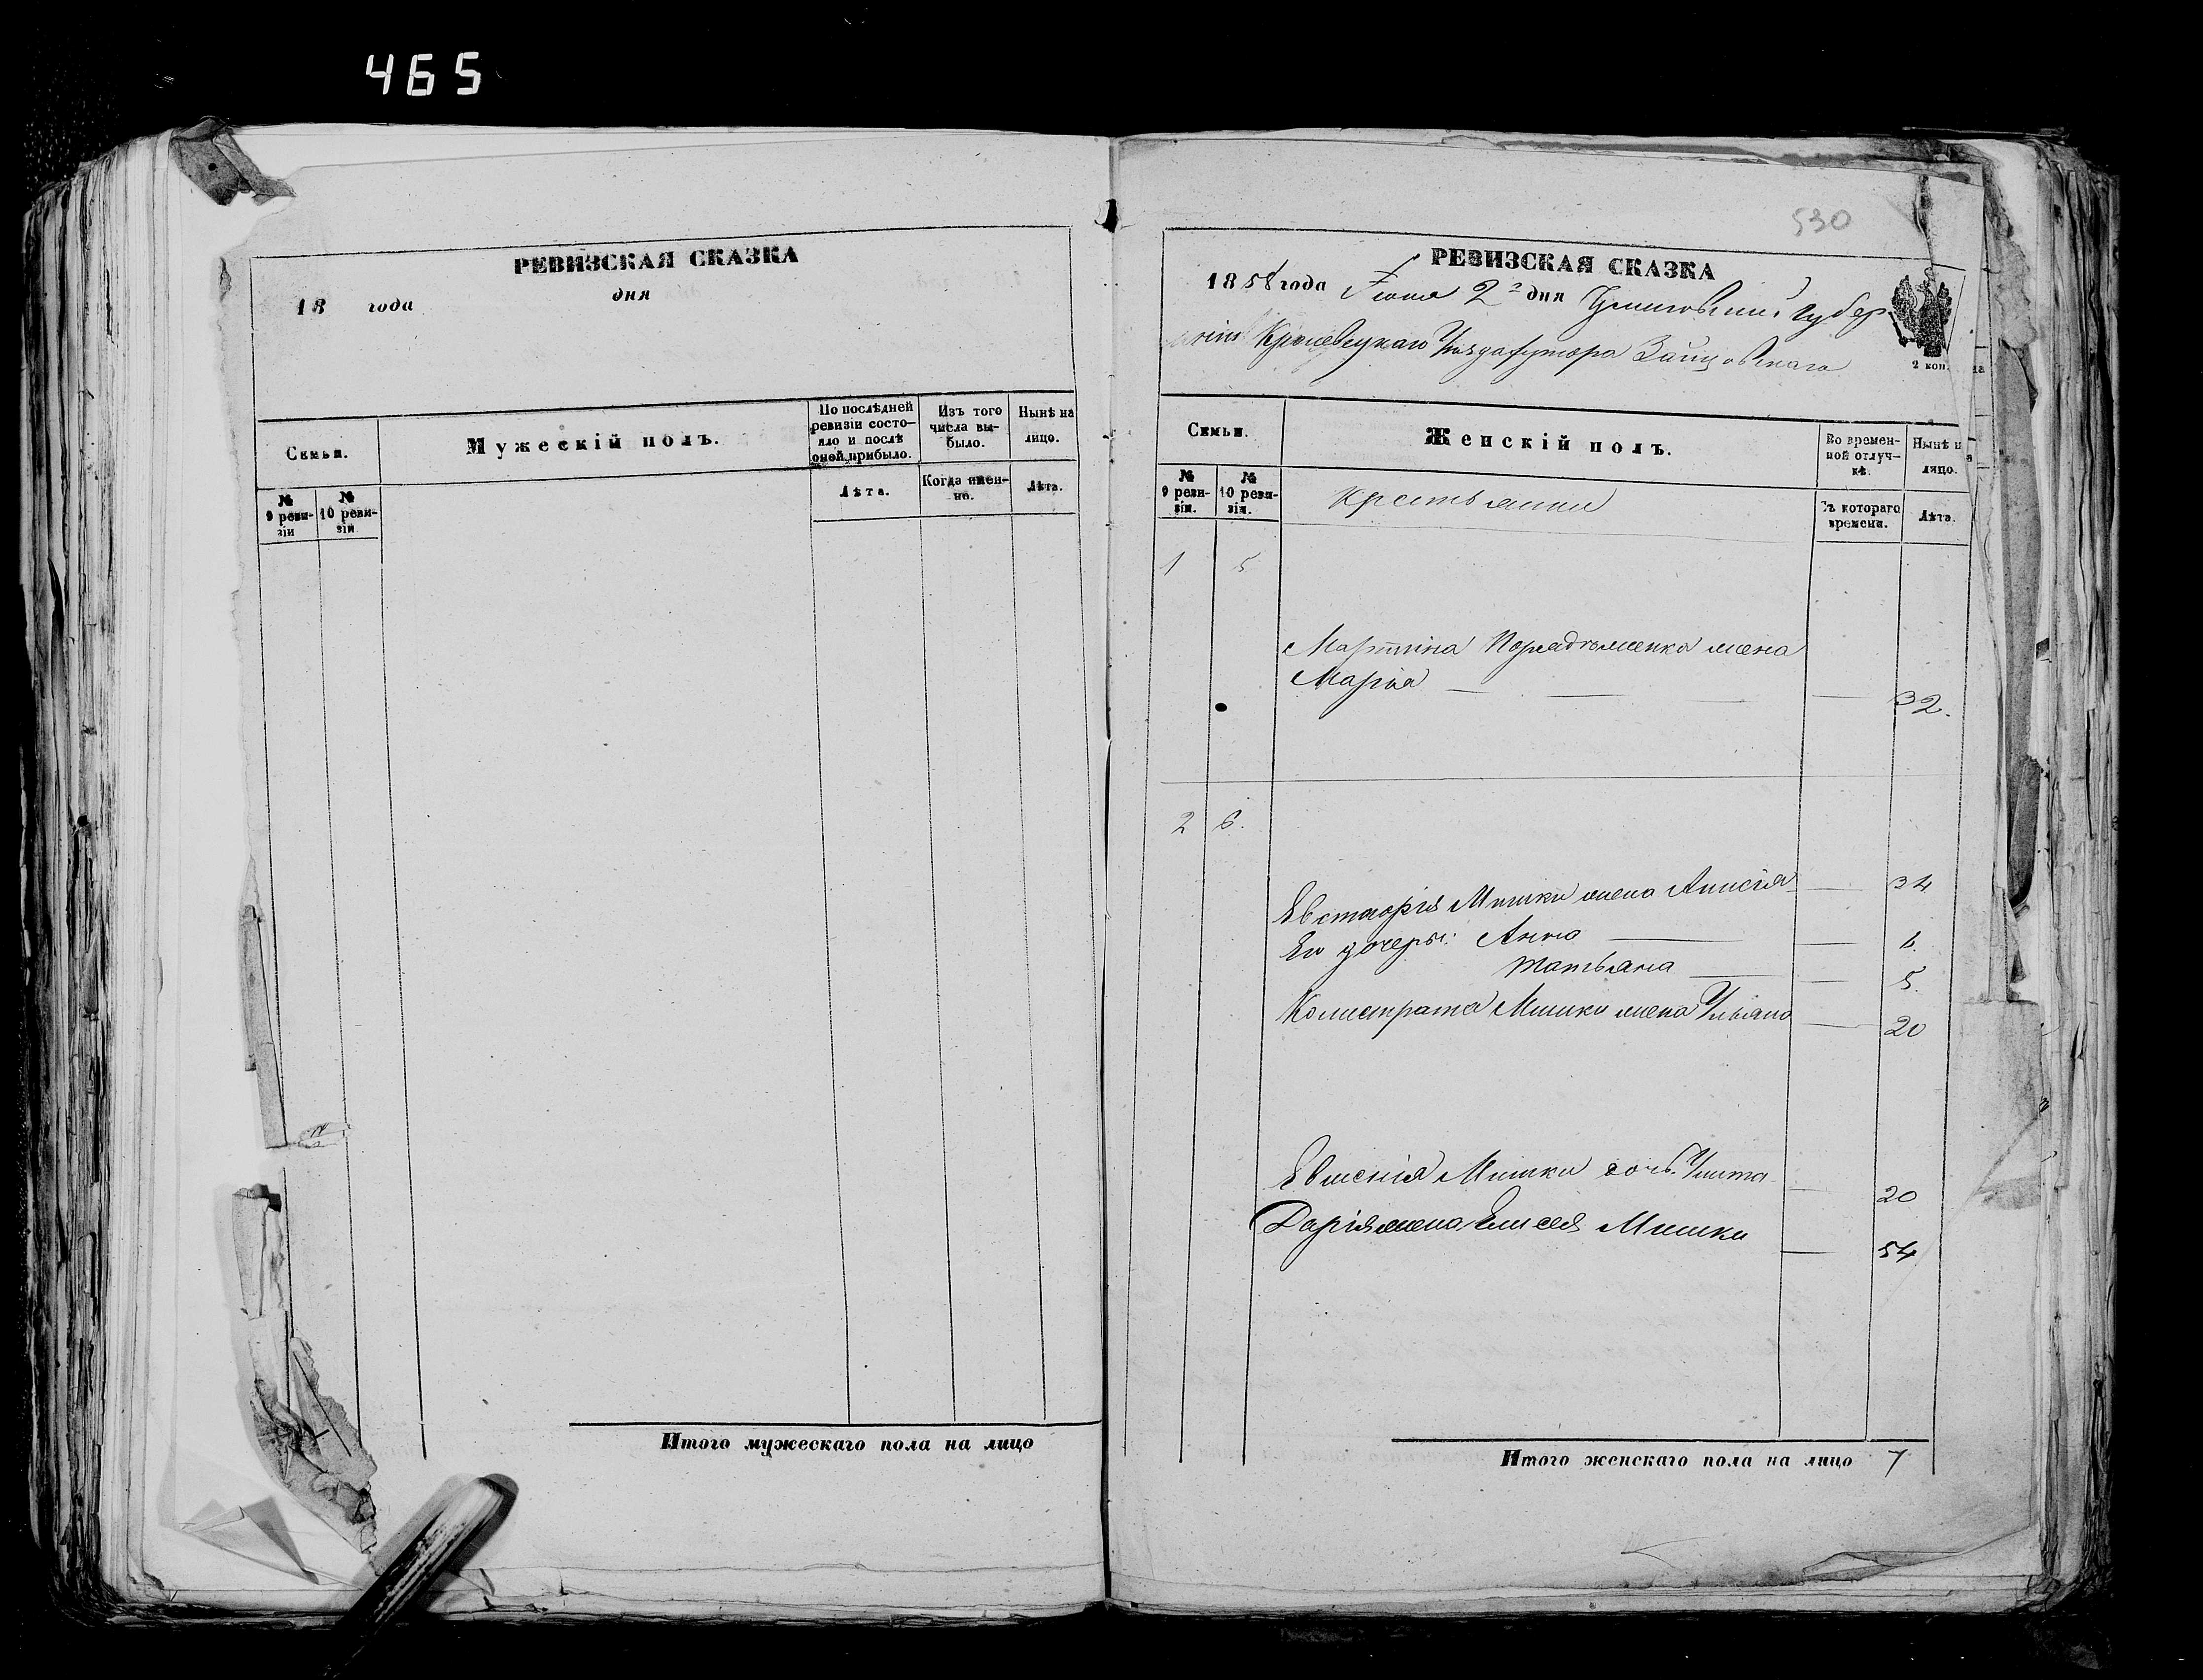 465
РЕВИЗСКАЯ СКАЗКА
18 года дня
Семьи.
Мужескій полъ.
По послѣдней ревизіи состояло и послѣ оной прибыло.
Изъ того числа выбыло.
Нынѣ на лицо.
№ 9 ревизіи
№ 10 ревизіи
Лѣта.
Когда именно.
Лѣта.
Итого мужескаго пола на лицо
530
РЕВИЗСКАЯ СКАЗКА
1858 года Іюня 2 дня Черниговской Губер
ніи Кролевецкаго Уѣзда хутора Зайцовскаго
2 коп.
Семьи.
Женскій полъ.
Во временной отлучкѣ.
Нынѣ н
лицо.
№ 9 ревизіи.
№ 10 ревизіи.
Крестьянки
Съ котораго времени.
Лѣта.
1 5
Мартина жена
Марія 32.
2 6.
Евстафія Мишки жена Анисія 34
Ея дочери: Анна 6.
Татьяна 5.
Калистрата Мишки жена Ульяна 20
Евгенія Мишки дочь 20
Дарія жена Елисея Мишки 54
Итого женскаго пола на лицо 7